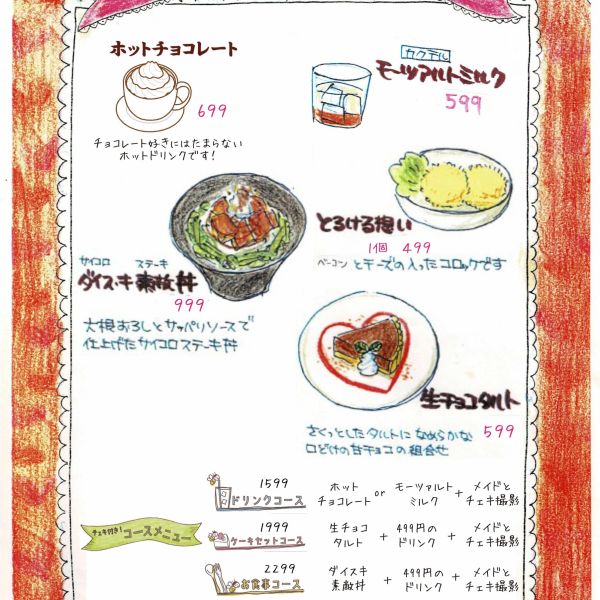 ホットチョコレート
699
チョコレート好きにはたまらない
ホットドリンクです！
カクテル
モーツァルトミルク
599
とろける想い
1個 499
ベーコンとチーズの入ったコロッケです
サイコロ ステーキ
ダイスキ素敵丼
999
大根おろしとサッパリソースで
仕上げたサイコロステーキ丼
生チョコタルト
599
さくっとしたタルトになめらかな
口どけの生チョコの組合せ
チェキ付き！コースメニュー
1599
ドリンクコース
ホット
チョコレート or モーツァルト
ミルク + メイドと
チェキ撮影
1999
ケーキセットコース
生チョコ
タルト + 499円の
ドリンク + メイドと
チェキ撮影
2299
お食事コース
ダイスキ
素敵丼 + 499円の
ドリンク + メイドと
チェキ撮影